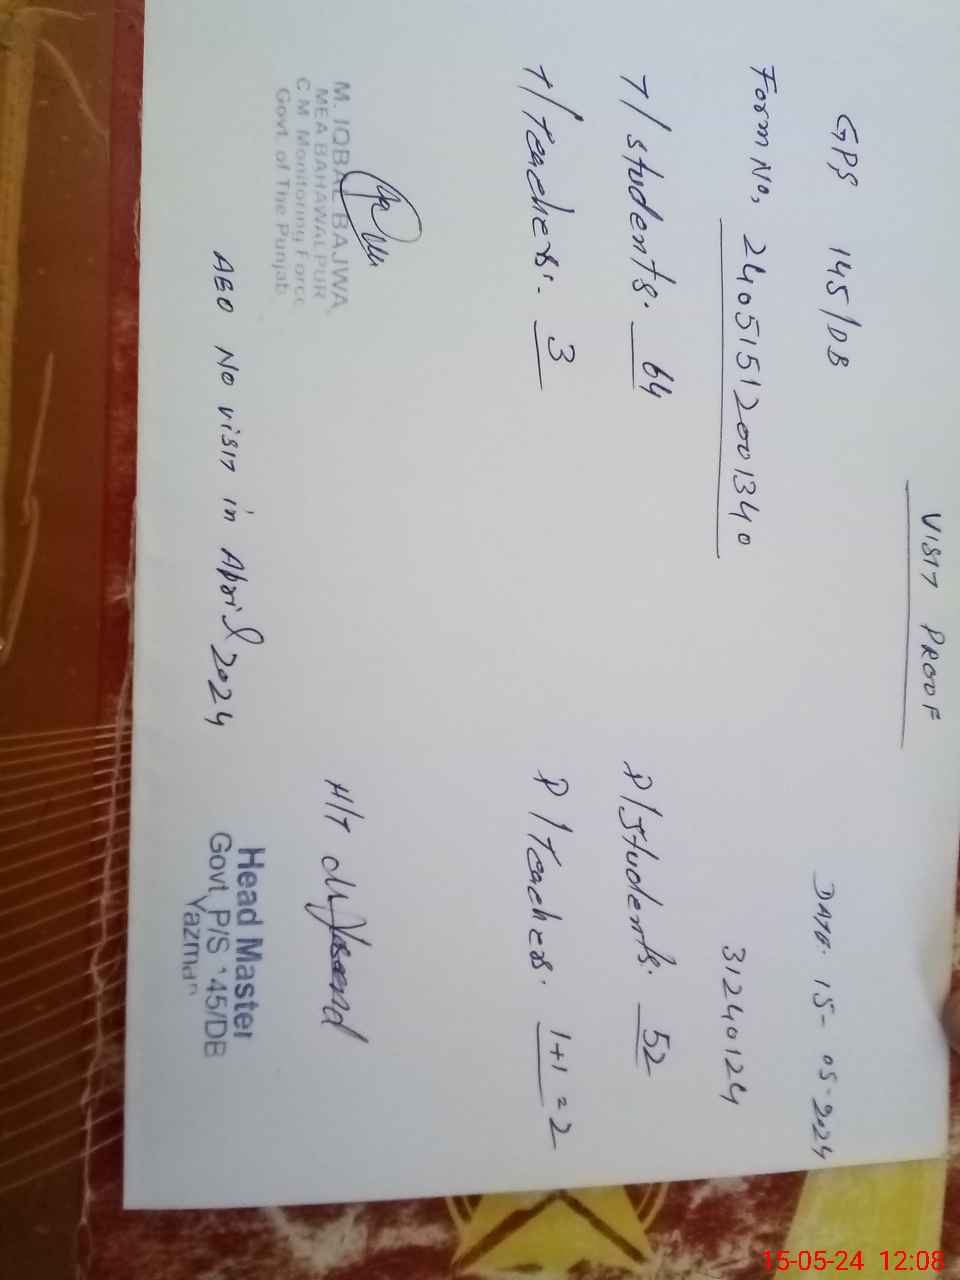 VISIT PROOF
GPS 145/DB DATE: 15-05-2024
Form No, 24051512001340 31240124
T/students. 64 P/Students. 52
T/Teachers. 3 P/Teachers. 1+1=2
M. IQBAL BAJWA
MEA BAHAWALPUR
C M Monitoring Force
Govt. of The Punjab
H/T
AEO No visit in April 2024
Head Master
Govt. P/S 145/DB
Yazman
15-05-24 12:08